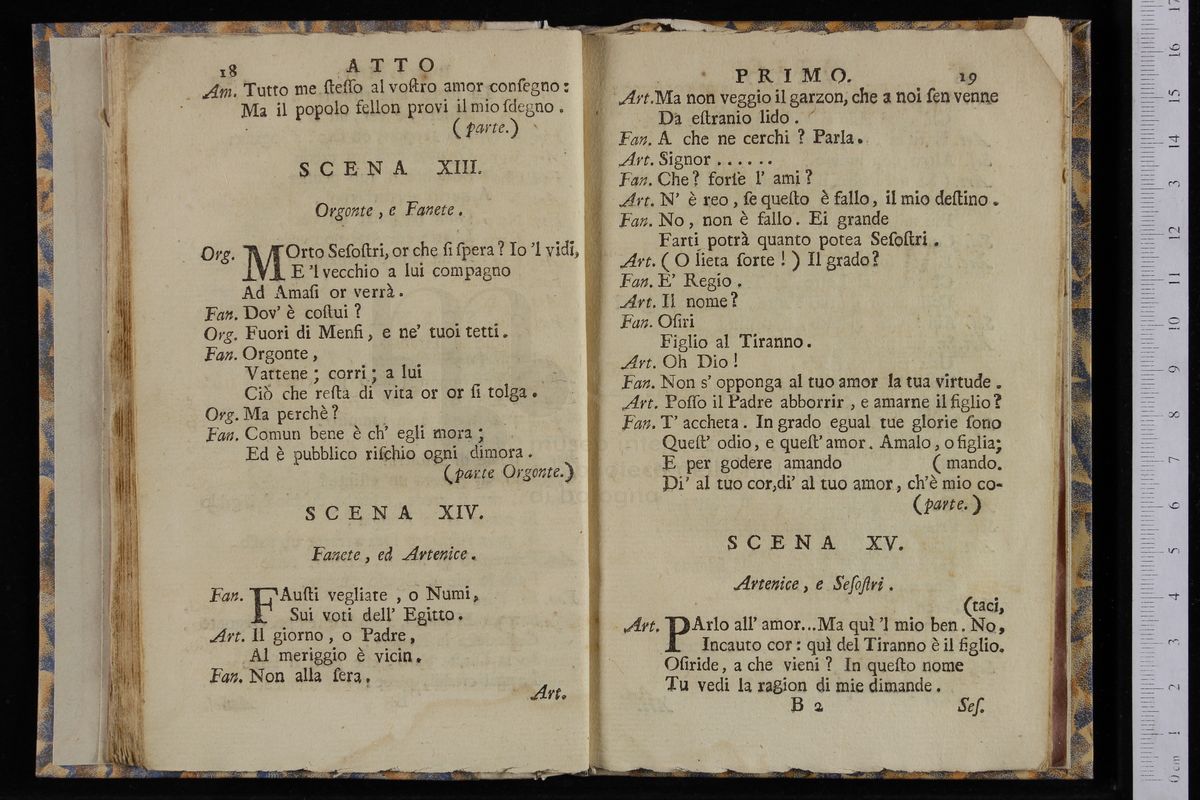 18
ATTO
Am. Tutto me ſteſſo al voſtro amor conſegno:
Ma il popolo fellon provi il mio ſdegno.
(parte.)
SCENA XIII.
Orgonte, e Fanete.
Org. MOrto Seſoſtri, or che ſi ſpera? Io 'l vidi,
E 'l vecchio a lui compagno
Ad Amaſi or verrà.
Fan. Dov' è coſtui?
Org. Fuori di Menfi, e ne' tuoi tetti.
Fan. Orgonte,
Vattene; corri; a lui
Ciò che reſta di vita or or ſi tolga.
Org. Ma perchè?
Fan. Comun bene è ch' egli mora;
Ed è pubblico riſchio ogni dimora.
(parte Orgonte.)
SCENA XIV.
Fanete, ed Artenice.
Fan. FAuſti vegliate, o Numi,
Sui voti dell' Egitto.
Art. Il giorno, o Padre,
Al meriggio è vicin.
Fan. Non alla ſera.
Art.
PRIMO.
19
Art. Ma non veggio il garzon, che a noi ſen venne
Da eſtranio lido.
Fan. A che ne cerchi? Parla.
Art. Signor......
Fan. Che? forſe l' ami?
Art. N' è reo, ſe queſto è fallo, il mio deſtino.
Fan. No, non è fallo. Ei grande
Farti potrà quanto potea Seſoſtri.
Art. (O lieta ſorte!) Il grado?
Fan. E' Regio.
Art. Il nome?
Fan. Oſiri
Figlio al Tiranno.
Art. Oh Dio!
Fan. Non s' opponga al tuo amor la tua virtude.
Art. Poſſo il Padre abborrir, e amarne il figlio?
Fan. T' accheta. In grado egual tue glorie ſono
Queſt' odio, e queſt' amor. Amalo, o figlia;
E per godere amando
(mando.
Di' al tuo cor, di' al tuo amor, ch'è mio co-
(parte.)
SCENA XV.
Artenice, e Seſoſtri.
(taci,
Art. PArlo all' amor...Ma quì 'l mio ben. No,
Incauto cor: quì del Tiranno è il figlio.
Oſiride, a che vieni? In queſto nome
Tu vedi la ragion di mie dimande.
B 2
Seſ.